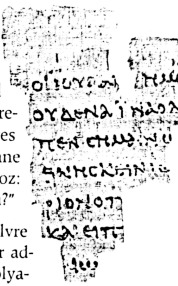 re-
es
ne
oz:
?”
lvre
r ad-
olya-
ΟΙ ΙΟΥΔΑΙ ΗΜ
ΟΥΔΕΝΑ ΙΝΑ Ο Λ
ΠΕΝ CΗΜΑΙΝΩ
ΘΝΗCΚΕΙΝ Ι
ΡΙΟΝ Ο Π
ΚΑΙ ΕΙΠ